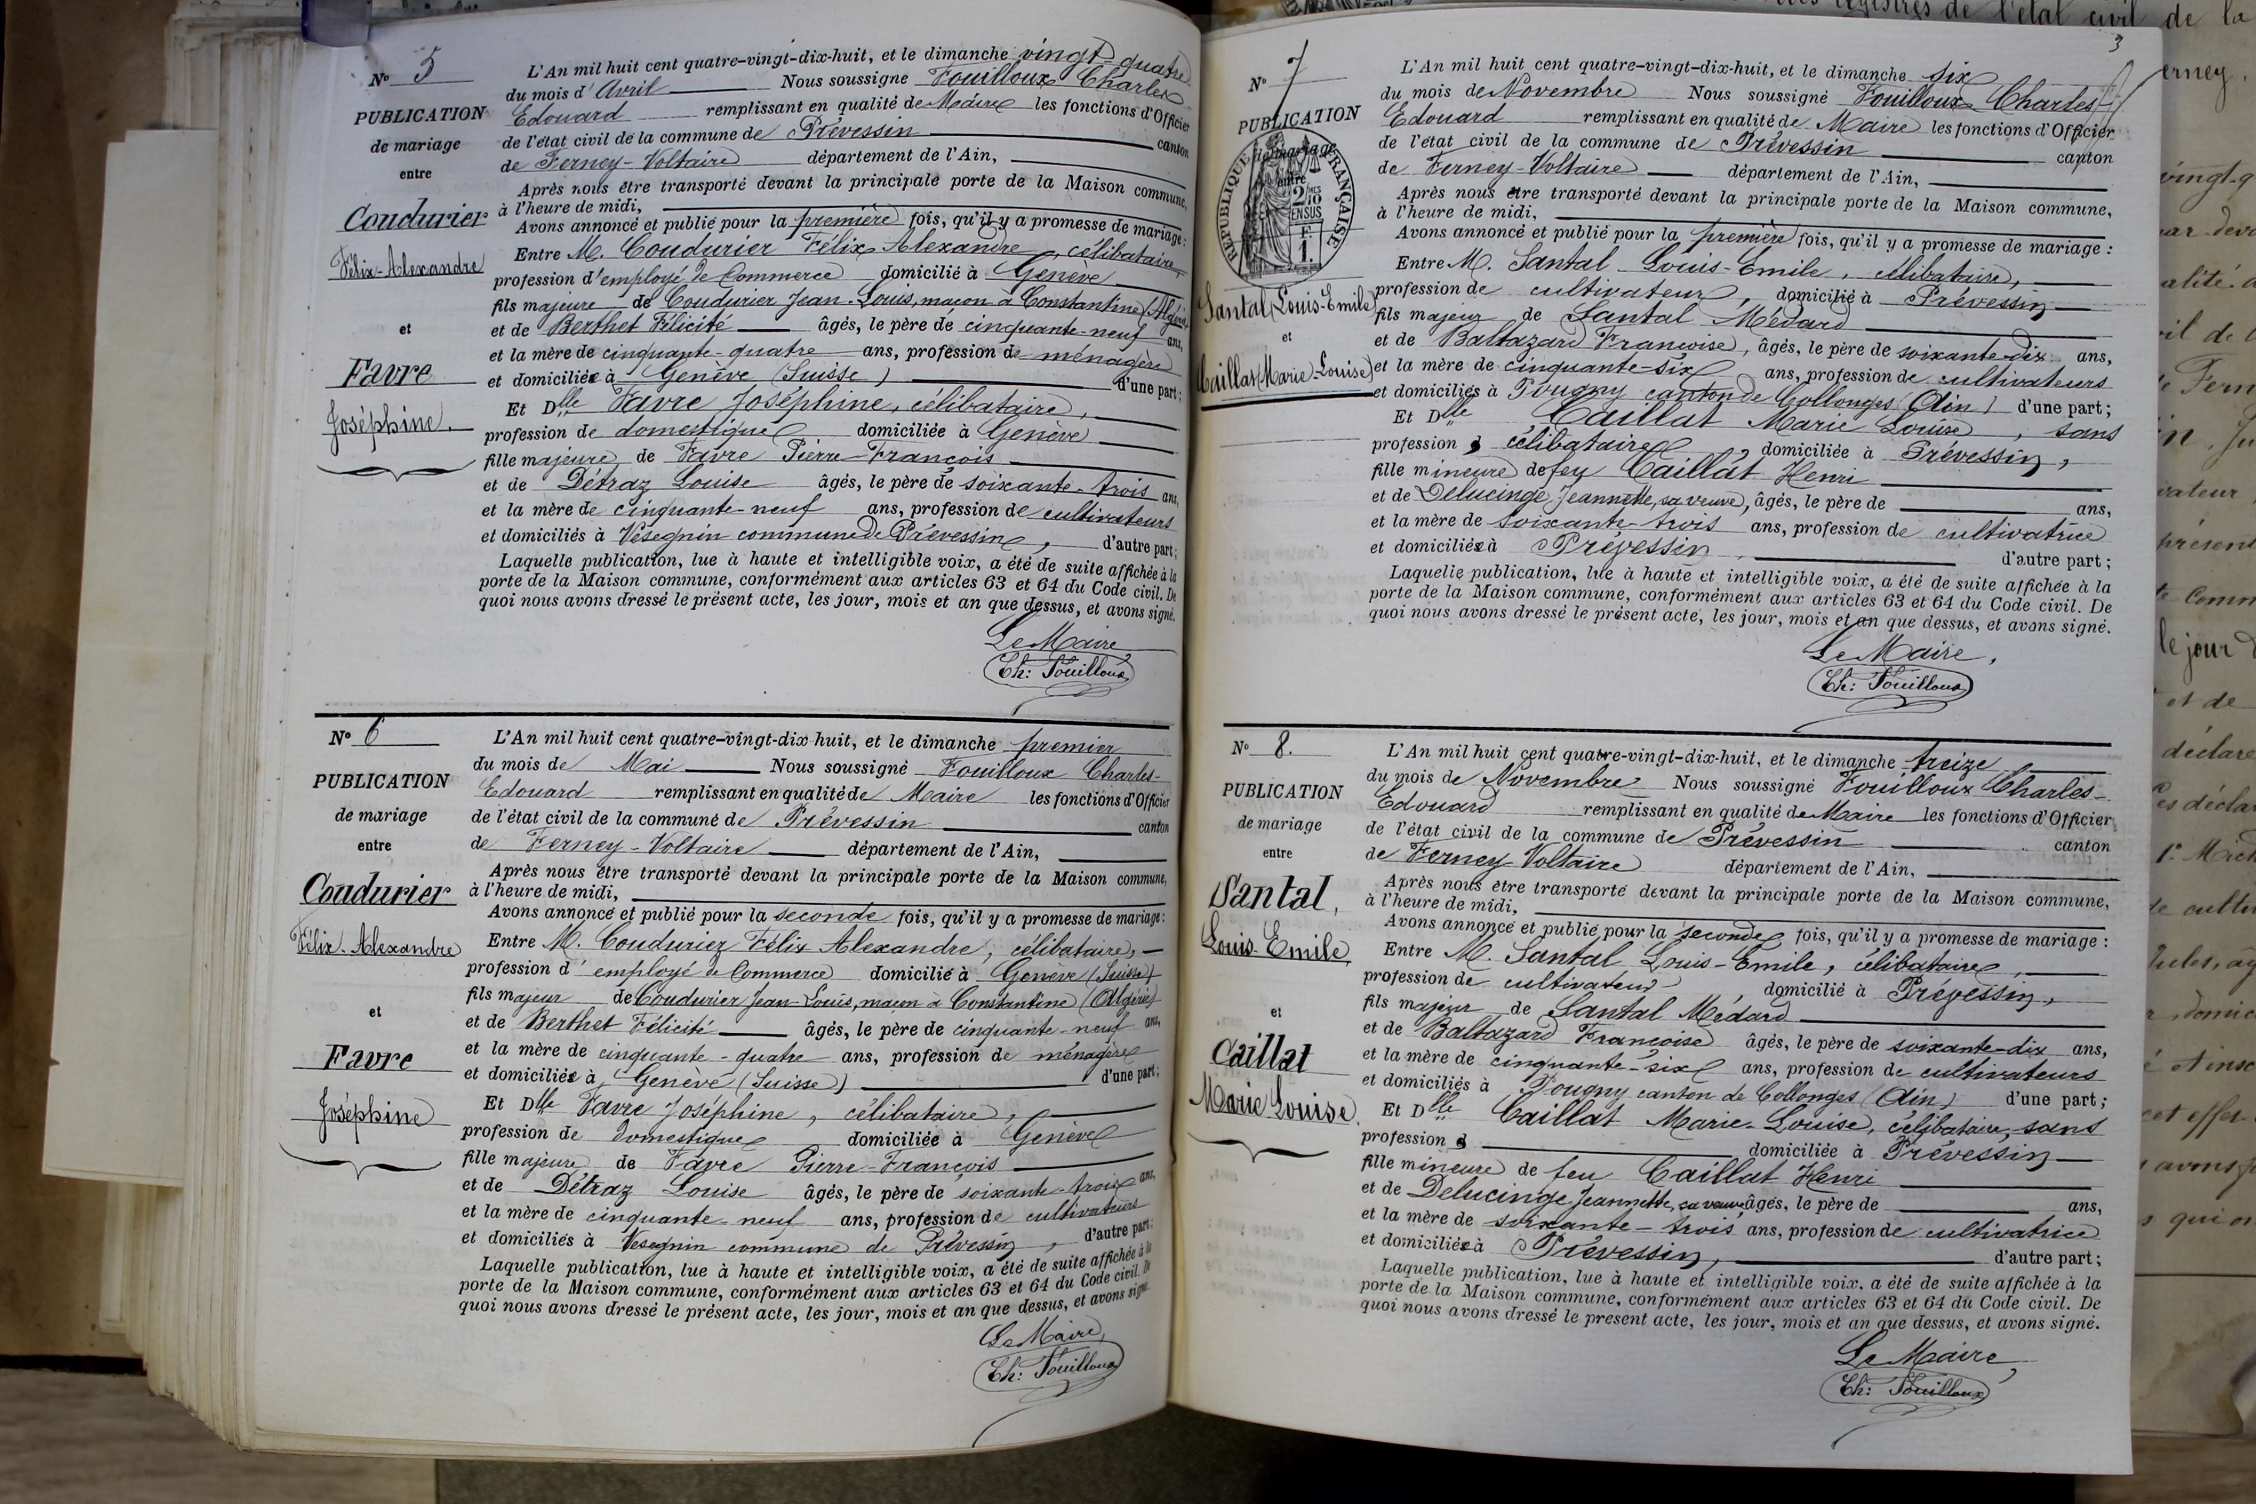 N° 5
PUBLICATION
de mariage
entre
Coudurier
Félix-Alexandre
et
Favre
Joséphine.
L'An mil huit cent quatre-vingt-dix-huit, et le dimanche vingt-quatre
du mois d'Avril Nous soussigné Fouilloux Charles-
Edouard remplissant en qualité de Maire les fonctions d'Officier
de l'état civil de la commune de Prévessin canton
de Ferney-Voltaire département de l'Ain,
Après nous être transporté devant la principale porte de la Maison commune,
à l'heure de midi,
Avons annoncé et publié pour la première fois, qu'il y a promesse de mariage :
Entre M. Coudurier Félix Alexandre, célibataire,
profession d'employé de Commerce domicilié à Genève
fils majeure de Coudurier Jean-Louis, maçon à Constantine (Algérie)
et de Berthet Félicité âgés, le père de cinquante-neuf ans,
et la mère de cinquante-quatre ans, profession de ménagère
et domiciliée à Genève (Suisse) d'une part ;
Et Dlle Favre Joséphine, célibataire,
profession de domestique domiciliée à Genève
fille majeure de Favre Pierre-François
et de Détraz Louise âgés, le père de soixante-trois ans,
et la mère de cinquante-neuf ans, profession de cultivateurs
et domiciliés à Vésegnin commune de Prévessin, d'autre part ;
Laquelle publication, lue à haute et intelligible voix, a été de suite affichée à la
porte de la Maison commune, conformément aux articles 63 et 64 du Code civil. De
quoi nous avons dressé le présent acte, les jour, mois et an que dessus, et avons signé.
Le Maire,
Ch: Fouilloux
N° 6
PUBLICATION
de mariage
entre
Coudurier
Félix-Alexandre
et
Favre
Joséphine
L'An mil huit cent quatre-vingt-dix huit, et le dimanche premier
du mois de Mai Nous soussigné Fouilloux Charles-
Edouard remplissant en qualité de Maire les fonctions d'Officier
de l'état civil de la commune de Prévessin canton
de Ferney-Voltaire département de l'Ain,
Après nous être transporté devant la principale porte de la Maison commune,
à l'heure de midi,
Avons annoncé et publié pour la seconde fois, qu'il y a promesse de mariage :
Entre M. Coudurier Félix Alexandre, célibataire,
profession d'employé de Commerce domicilié à Genève (Suisse)
fils majeur de Coudurier Jean-Louis, maçon à Constantine (Algérie)
et de Berthet Félicité âgés, le père de cinquante-neuf ans,
et la mère de cinquante-quatre ans, profession de ménagère
et domiciliée à Genève (Suisse) d'une part ;
Et Dlle Favre Joséphine, célibataire,
profession de domestique domiciliée à Genève
fille majeure de Favre Pierre-François
et de Détraz Louise âgés, le père de soixante-trois ans,
et la mère de cinquante-neuf ans, profession de cultivateurs
et domiciliés à Vésegnin commune de Prévessin, d'autre part ;
Laquelle publication, lue à haute et intelligible voix, a été de suite affichée à la
porte de la Maison commune, conformément aux articles 63 et 64 du Code civil. De
quoi nous avons dressé le présent acte, les jour, mois et an que dessus, et avons signé.
Le Maire,
Ch: Fouilloux
3
N° 7
PUBLICATION
de mariage
entre
RÉPUBLIQUE FRANÇAISE
2/10
EN SUS
F
1.
Santal (Louis-Emile)
et
Caillat (Marie-Louise)
L'An mil huit cent quatre-vingt-dix-huit, et le dimanche six
du mois de Novembre Nous soussigné Fouilloux Charles-
Edouard remplissant en qualité de Maire les fonctions d'Officier
de l'état civil de la commune de Prévessin canton
de Ferney-Voltaire département de l'Ain,
Après nous être transporté devant la principale porte de la Maison commune,
à l'heure de midi,
Avons annoncé et publié pour la première fois, qu'il y a promesse de mariage :
Entre M. Santal Louis-Emile, célibataire,
profession de cultivateur, domicilié à Prévessin
fils majeur de Santal Médard
et de Baltazard Françoise, âgés, le père de soixante-dix ans,
et la mère de cinquante-six ans, profession de cultivateurs
et domiciliés à Pougny canton de Collonges (Ain) d'une part ;
Et Dlle Caillat Marie Louise, sans
profession célibataire, domiciliée à Prévessin,
fille mineure de feu Caillat Henri
et de Delucinge Jeannette, sa veuve, âgés, le père de ans,
et la mère de soixante-trois ans, profession de cultivatrice
et domiciliée à Prévessin, d'autre part ;
Laquelle publication, lue à haute et intelligible voix, a été de suite affichée à la
porte de la Maison commune, conformément aux articles 63 et 64 du Code civil. De
quoi nous avons dressé le présent acte, les jour, mois et an que dessus, et avons signé.
Le Maire,
Ch: Fouilloux
N° 8.
PUBLICATION
de mariage
entre
Santal,
Louis-Emile
et
Caillat
Marie Louise.
L'An mil huit cent quatre-vingt-dix-huit, et le dimanche treize
du mois de Novembre Nous soussigné Fouilloux Charles-
Edouard remplissant en qualité de Maire les fonctions d'Officier
de l'état civil de la commune de Prévessin canton
de Ferney-Voltaire département de l'Ain,
Après nous être transporté devant la principale porte de la Maison commune,
à l'heure de midi,
Avons annoncé et publié pour la seconde fois, qu'il y a promesse de mariage :
Entre M. Santal Louis-Emile, célibataire,
profession de cultivateur domicilié à Prévessin,
fils majeur de Santal Médard
et de Baltazard Françoise âgés, le père de soixante-dix ans,
et la mère de cinquante-six ans, profession de cultivateurs
et domiciliés à Pougny canton de Collonges (Ain) d'une part ;
Et Dlle Caillat Marie-Louise, célibataire, sans
profession domiciliée à Prévessin
fille mineure de feu Caillat Henri
et de Delucinge Jeannette, sa veuve âgés, le père de ans,
et la mère de soixante-trois ans, profession de cultivatrice
et domiciliée à Prévessin, d'autre part ;
Laquelle publication, lue à haute et intelligible voix, a été de suite affichée à la
porte de la Maison commune, conformément aux articles 63 et 64 du Code civil. De
quoi nous avons dressé le présent acte, les jour, mois et an que dessus, et avons signé.
Le Maire,
Ch: Fouilloux
registres de l'état civil de la